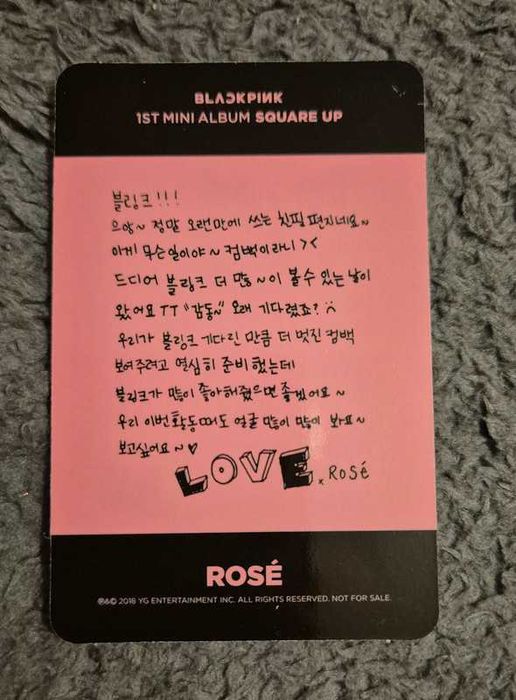 BLACKPINK
1ST MINI ALBUM SQUARE UP
블링크!!!
으앙~ 정말 오랜만에 쓰는 친필편지네요~
이게 무슨일이야~ 컴백이라니 ><
드디어 블링크 더 많~이 볼수 있는날이
왔어요 TT "감동~" 오래 기다렸죠? :(
우리가 블링크 기다린 만큼 더 멋진 컴백
보여주려고 열심히 준비했는데
블링크가 많이 좋아해줬으면 좋겠어요~
우리 이번활동때도 얼굴 많이 많이 봐요~
보고싶어요~♡
LOVE x Rosé
ROSÉ
℗&© 2018 YG ENTERTAINMENT INC. ALL RIGHTS RESERVED. NOT FOR SALE.